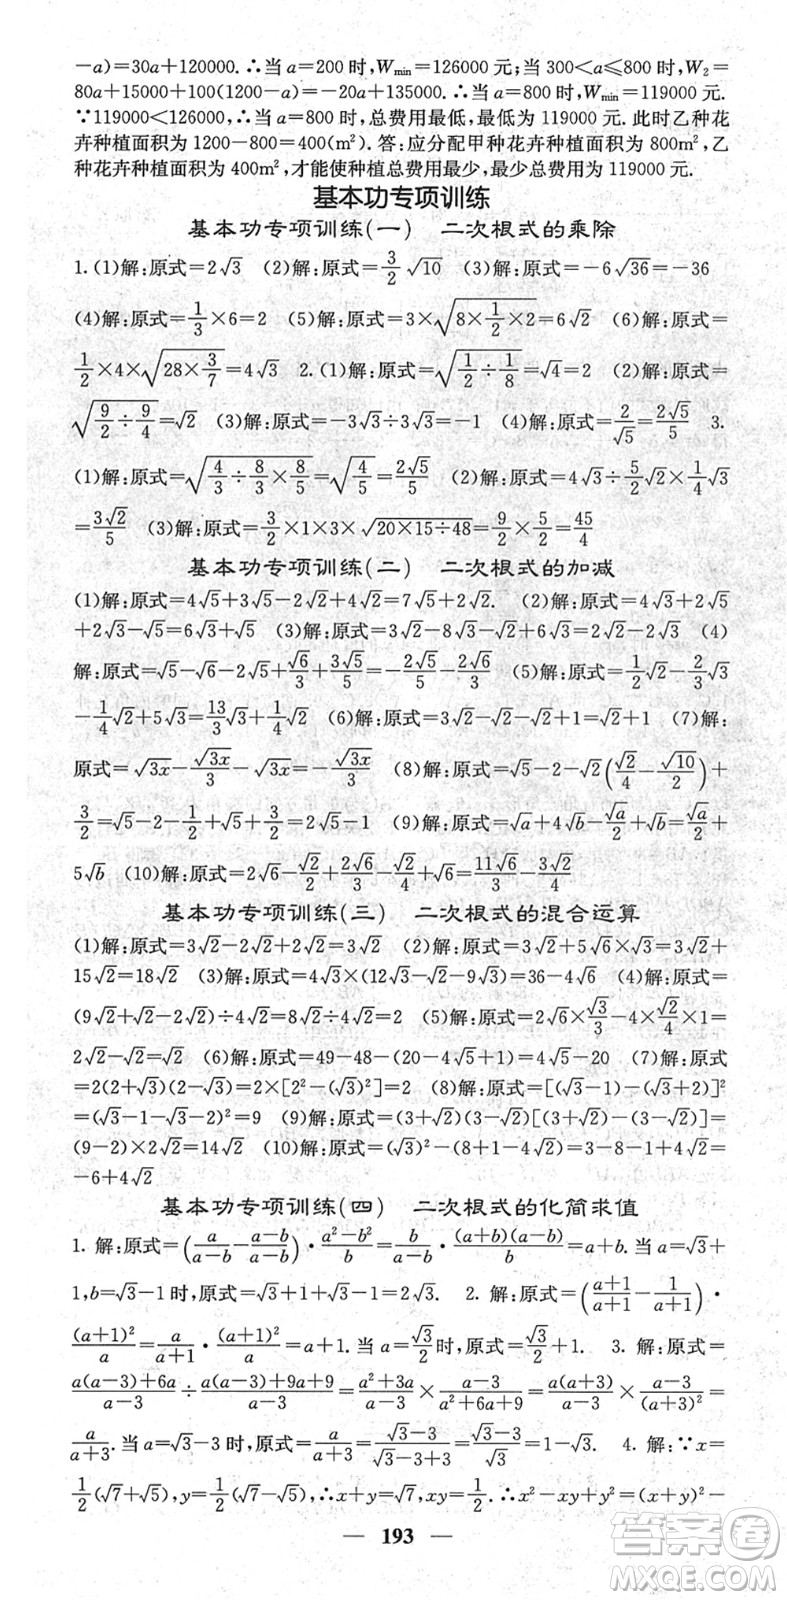 -a)=30a+120000.∴当a=200时,Wmin=126000元;当300<a≤800时,W₂=
80a+15000+100(1200-a)=-20a+135000.∴当a=800时,Wmin=119000元.
∵119000<126000,∴当a=800时,总费用最低,最低为119000元.此时乙种花
卉种植面积为1200-800=400(m²).答:应分配甲种花卉种植面积为800m²,乙
种花卉种植面积为400m²,才能使种植总费用最少,最少总费用为119000元.
基本功专项训练
基本功专项训练(一) 二次根式的乘除
1.(1)解:原式=2√3 (2)解:原式=3/2 √10 (3)解:原式=-6√36=-36
(4)解:原式=1/3×6=2 (5)解:原式=3×√(8×1/2×2)=6√2 (6)解:原式=
1/2×4×√(28×3/7)=4√3 2.(1)解:原式=√(1/2÷1/8)=√4=2 (2)解:原式=
√(9/2÷9/4)=√2 (3)解:原式=-3√3÷3√3=-1 (4)解:原式=2/√5=2√5/5 3.
(1)解:原式=√(4/3÷8/3×8/5)=√(4/5)=2√5/5 (2)解:原式=4√3÷5/2√2×1/4√3
=3√2/5 (3)解:原式=3/2×1×3×√(20×15÷48)=9/2×5/2=45/4
基本功专项训练(二) 二次根式的加减
(1)解:原式=4√5+3√5-2√2+4√2=7√5+2√2. (2)解:原式=4√3+2√5
+2√3-√5=6√3+√5 (3)解:原式=3√2-8√3-√2+6√3=2√2-2√3 (4)
解:原式=√5-√6-2√5+√6/3+3√5/5=-2√5/5-2√6/3 (5)解:原式=1/2√2-2/3√3
-1/4√2+5√3=13/3√3+√2/4 (6)解:原式=3√2-√2-√2+1=√2+1 (7)解:
原式=√3x-√3x/3-√3x=-√3x/3 (8)解:原式=√5-2-√2(√2/4-√10/2)+
3/2=√5-2-1/2+√5+3/2=2√5-1 (9)解:原式=√a+4√b-√a/2+√b=√a/2+
5√b (10)解:原式=2√6-√2/2+2√6/3-√2/4+√6=11√6/3-3√2/4
基本功专项训练(三) 二次根式的混合运算
(1)解:原式=3√2-2√2+2√2=3√2 (2)解:原式=3√2+5√6×√3=3√2+
15√2=18√2 (3)解:原式=4√3×(12√3-√2-9√3)=36-4√6 (4)解:原式=
(9√2+√2-2√2)÷4√2=8√2÷4√2=2 (5)解:原式=2√6×√3/3-4×√2/4×1=
2√2-√2=√2 (6)解:原式=49-48-(20-4√5+1)=4√5-20 (7)解:原式
=2(2+√3)(2-√3)=2×[2²-(√3)²]=2 (8)解:原式=[(√3-1)-(√3+2)]²
=(√3-1-√3-2)²=9 (9)解:原式=(3+√2)(3-√2)[(3+√2)-(3-√2)]=
(9-2)×2√2=14√2 (10)解:原式=(√3)²-(8+1-4√2)=3-8-1+4√2=
-6+4√2
基本功专项训练(四) 二次根式的化简求值
1. 解:原式=(a/(a-b)-(a-b)/(a-b))·(a²-b²)/b=b/(a-b)·(a+b)(a-b)/b=a+b.当a=√3+
1,b=√3-1时,原式=√3+1+√3-1=2√3. 2. 解:原式=((a+1)/(a+1)-1/(a+1))·
(a+1)²/a=a/(a+1)·(a+1)²/a=a+1.当a=√3/2时,原式=√3/2+1. 3. 解:原式=
(a(a-3)+6a)/(a-3)÷(a(a-3)+9a+9)/(a-3)=(a²+3a)/(a-3)×(a-3)/(a²+6a+9)=a(a+3)/(a-3)×(a-3)/(a+3)²=
a/(a+3).当a=√3-3时,原式=a/(a+3)=(√3-3)/(√3-3+3)=(√3-3)/√3=1-√3. 4. 解:∵x=
1/2(√7+√5),y=1/2(√7-√5),∴x+y=√7,xy=1/2.∴x²-xy+y²=(x+y)²-
— 193 —
答案圈
MXQE.COM